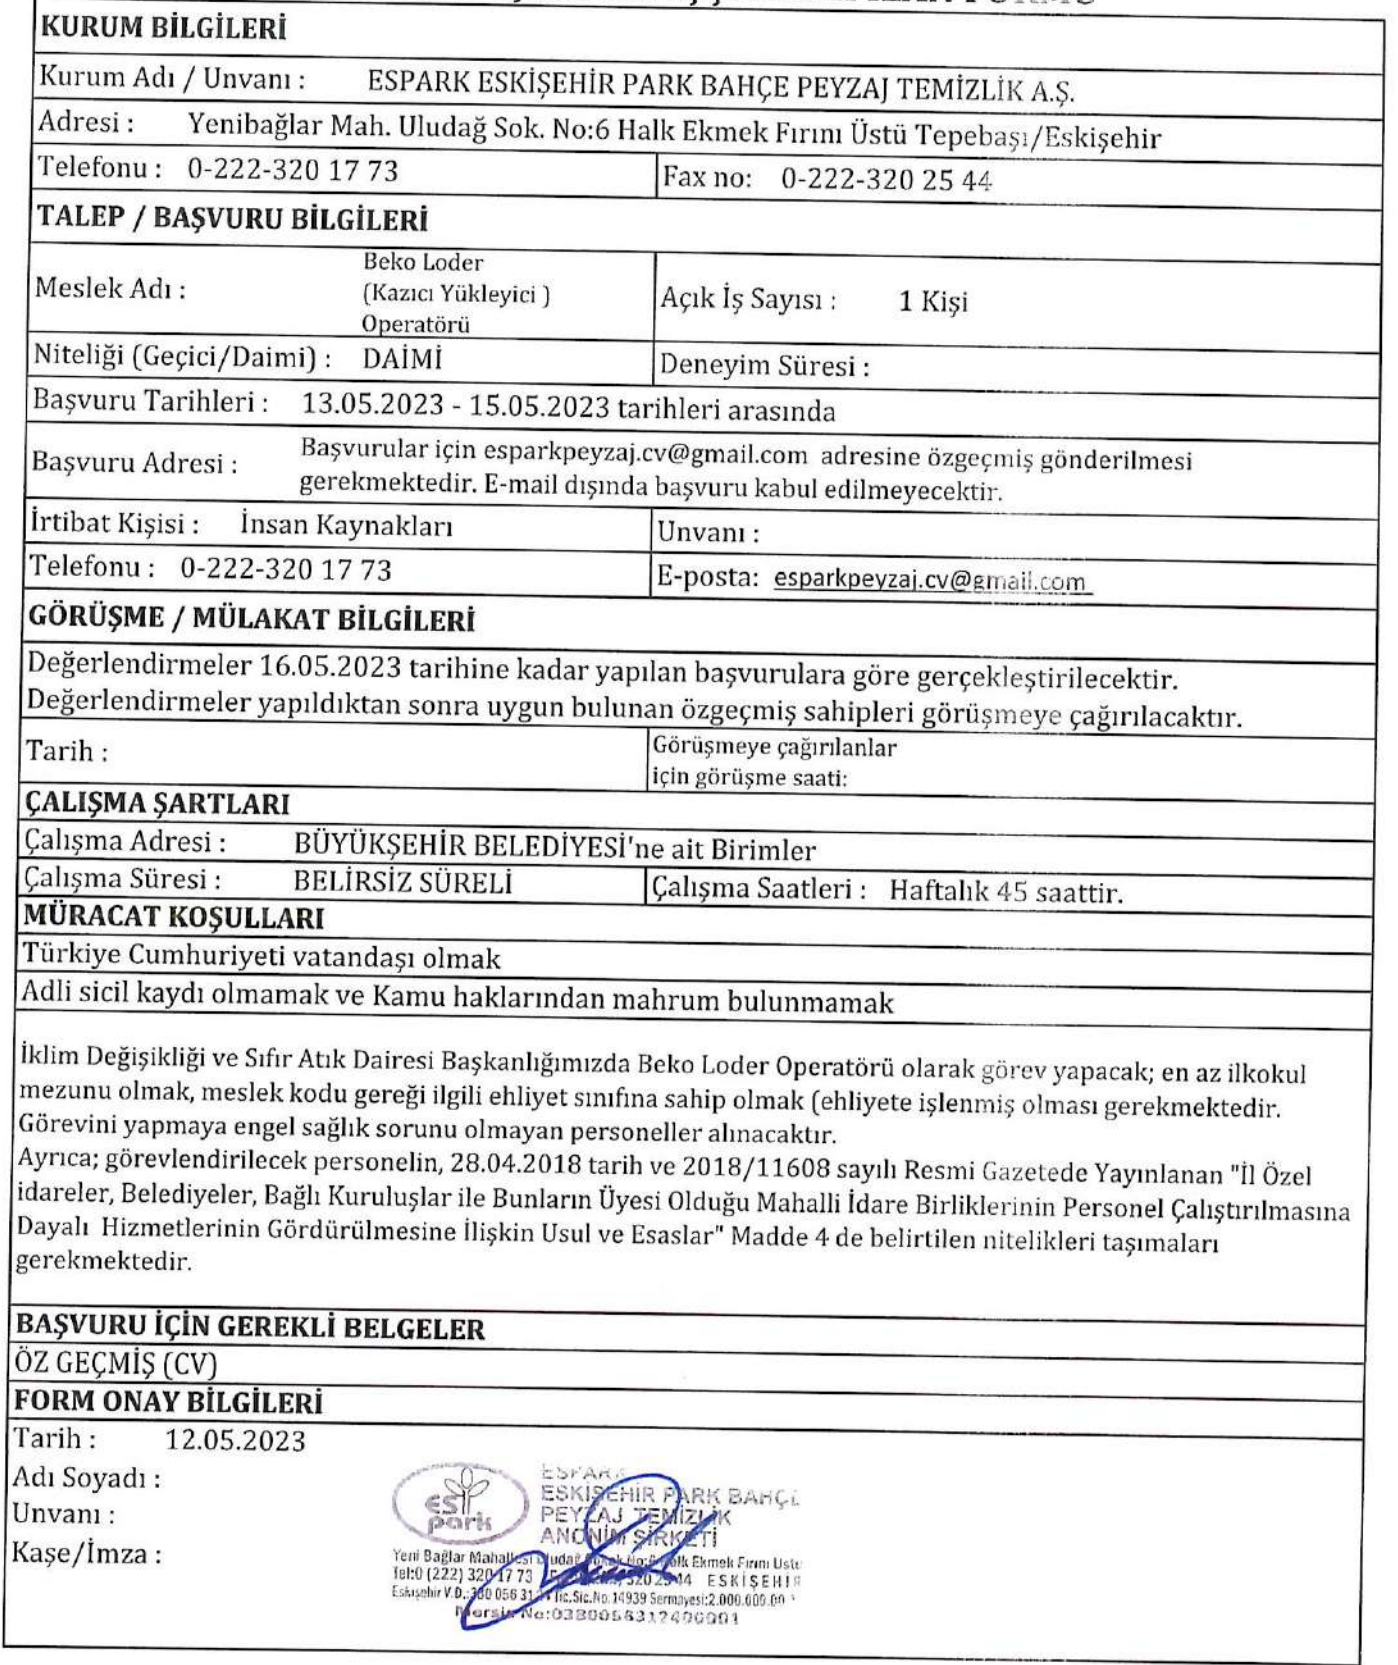 KURUM BİLGİLERİ
Kurum Adı / Unvanı : ESPARK ESKİŞEHİR PARK BAHÇE PEYZAJ TEMİZLİK A.Ş.
Adresi : Yenibağlar Mah. Uludağ Sok. No:6 Halk Ekmek Fırını Üstü Tepebaşı/Eskişehir
Telefonu : 0-222-320 17 73 Fax no: 0-222-320 25 44
TALEP / BAŞVURU BİLGİLERİ
Meslek Adı : Beko Loder
(Kazıcı Yükleyici )
Operatörü
Açık İş Sayısı : 1 Kişi
Niteliği (Geçici/Daimi) : DAİMİ Deneyim Süresi :
Başvuru Tarihleri : 13.05.2023 - 15.05.2023 tarihleri arasında
Başvuru Adresi : Başvurular için esparkpeyzaj.cv@gmail.com adresine özgeçmiş gönderilmesi
gerekmektedir. E-mail dışında başvuru kabul edilmeyecektir.
İrtibat Kişisi : İnsan Kaynakları Unvanı :
Telefonu : 0-222-320 17 73 E-posta: esparkpeyzaj.cv@gmail.com
GÖRÜŞME / MÜLAKAT BİLGİLERİ
Değerlendirmeler 16.05.2023 tarihine kadar yapılan başvurulara göre gerçekleştirilecektir.
Değerlendirmeler yapıldıktan sonra uygun bulunan özgeçmiş sahipleri görüşmeye çağırılacaktır.
Tarih : Görüşmeye çağırılanlar
için görüşme saati:
ÇALIŞMA ŞARTLARI
Çalışma Adresi : BÜYÜKŞEHİR BELEDİYESİ'ne ait Birimler
Çalışma Süresi : BELİRSİZ SÜRELİ Çalışma Saatleri : Haftalık 45 saattir.
MÜRACAT KOŞULLARI
Türkiye Cumhuriyeti vatandaşı olmak
Adli sicil kaydı olmamak ve Kamu haklarından mahrum bulunmamak
İklim Değişikliği ve Sıfır Atık Dairesi Başkanlığımızda Beko Loder Operatörü olarak görev yapacak; en az ilkokul
mezunu olmak, meslek kodu gereği ilgili ehliyet sınıfına sahip olmak (ehliyete işlenmiş olması gerekmektedir.
Görevini yapmaya engel sağlık sorunu olmayan personeller alınacaktır.
Ayrıca; görevlendirilecek personelin, 28.04.2018 tarih ve 2018/11608 sayılı Resmi Gazetede Yayınlanan "İl Özel
idareler, Belediyeler, Bağlı Kuruluşlar ile Bunların Üyesi Olduğu Mahalli İdare Birliklerinin Personel Çalıştırılmasına
Dayalı Hizmetlerinin Gördürülmesine İlişkin Usul ve Esaslar" Madde 4 de belirtilen nitelikleri taşımaları
gerekmektedir.
BAŞVURU İÇİN GEREKLİ BELGELER
ÖZ GEÇMİŞ (CV)
FORM ONAY BİLGİLERİ
Tarih : 12.05.2023
Adı Soyadı :
Unvanı :
Kaşe/İmza :
ESpark
ESPARK
ESKİŞEHİR PARK BAHÇE
PEYZAJ TEMİZLİK
ANONİM ŞİRKETİ
Yeni Bağlar Mahallesi Uludağ Sokak No:6 Halk Ekmek Fırını Üstü
Tel:0 (222) 320 17 73 320 25 44 ESKİŞEHİR
Eskişehir V.D.: Tic.Sic.No.14939 Sermayesi:2.000.000.00
Mersis No: